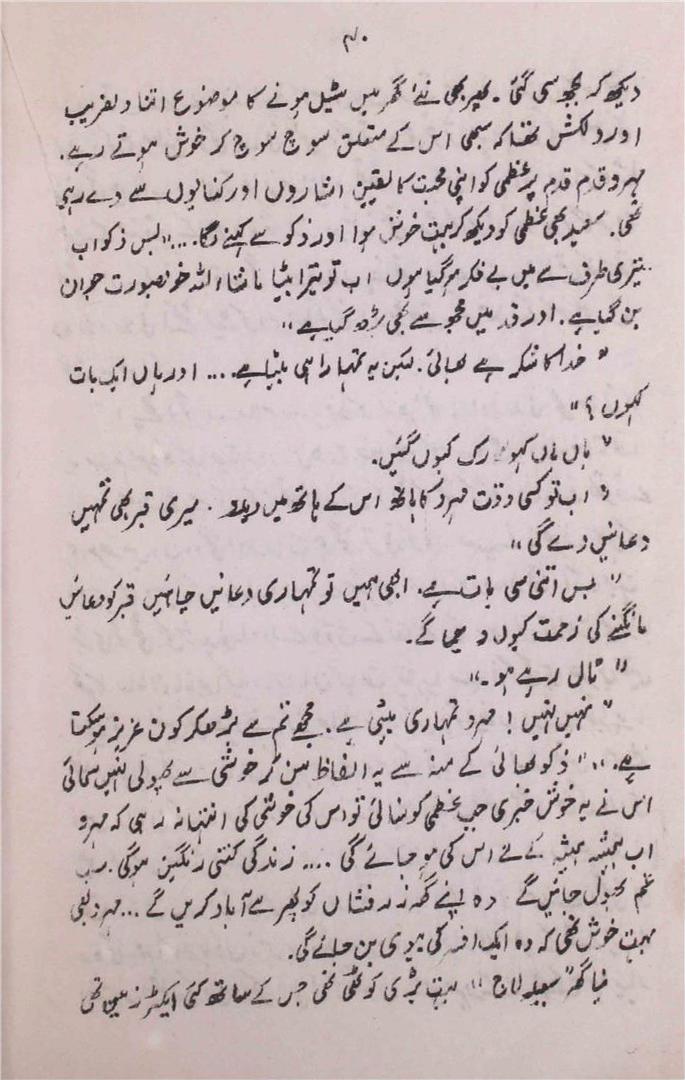 ۴۰
دیکھ کر بجھ سی گئی ۔ پھر بھی نئے گھر میں سٹیل ہونے کا موضوع اتنا دلفریب
اور دلکش تھا کہ سبھی اس کے متعلق سوچ سوچ کر خوش ہوتے رہے ۔
مہرو قدم قدم پر عظمی کو اپنی محبت کا یقین اشاروں اور کنایوں سے دے رہی
تھی ۔ سعید بھی عظمی کو دیکھ کر بہت خوش ہوا اور ذکو سے کہنے لگا ... "بس ذکو اب
تیری طرف سے میں بے فکر ہو گیا ہوں اب تو تیرا بیٹا ماشاء اللہ خوبصورت جوان
بن گیا ہے ۔ اور قد میں مجھ سے بھی بڑھ گیا ہے "
" خدا کا شکر ہے بھائی ۔ لیکن یہ تمہارا ہی بیٹا ہے .... اور ہاں ایک بات
کہوں ؟ "
" ہاں ہاں کہو رک کیوں گئیں ۔
" اب تو کسی وقت مہرو کا ہاتھ اس کے ہاتھ میں دیدو ۔ میری قبر بھی تمہیں
دعائیں دے گی "
" بس اتنی سی بات ہے ۔ ابھی ہمیں تو تمہاری دعائیں چاہئیں قبر کو دعائیں
مانگنے کی زحمت کیوں دی جائے ۔
" ٹال رہے ہو ۔ "
" نہیں نہیں ! مہرو تمہاری بیٹی ہے ۔ مجھے تم سے بڑھ کر کون عزیز ہو سکتا
ہے ... " ذکو بھائی کے منہ سے یہ الفاظ سن کر خوشی سے پھولی نہیں سمائی
اس نے یہ خوش خبری جب عظمی کو سنائی تو اس کی خوشی کی انتہا نہ رہی کہ مہرو
اب ہمیشہ ہمیشہ کے لئے اس کی ہو جائے گی .... زندگی کتنی رنگین ہوگی ۔ سب
غم بھول جائیں گے وہ اپنے گھر زرفشاں کو پھر سے آباد کریں گے ... مہرو بھی
بہت خوش تھی کہ وہ ایک افسر کی بیوی بن جائے گی ۔
نیا گھر "سعید لاج " بہت بڑی کوٹھی تھی جس کے ساتھ کئی ایکڑ زمین تھی